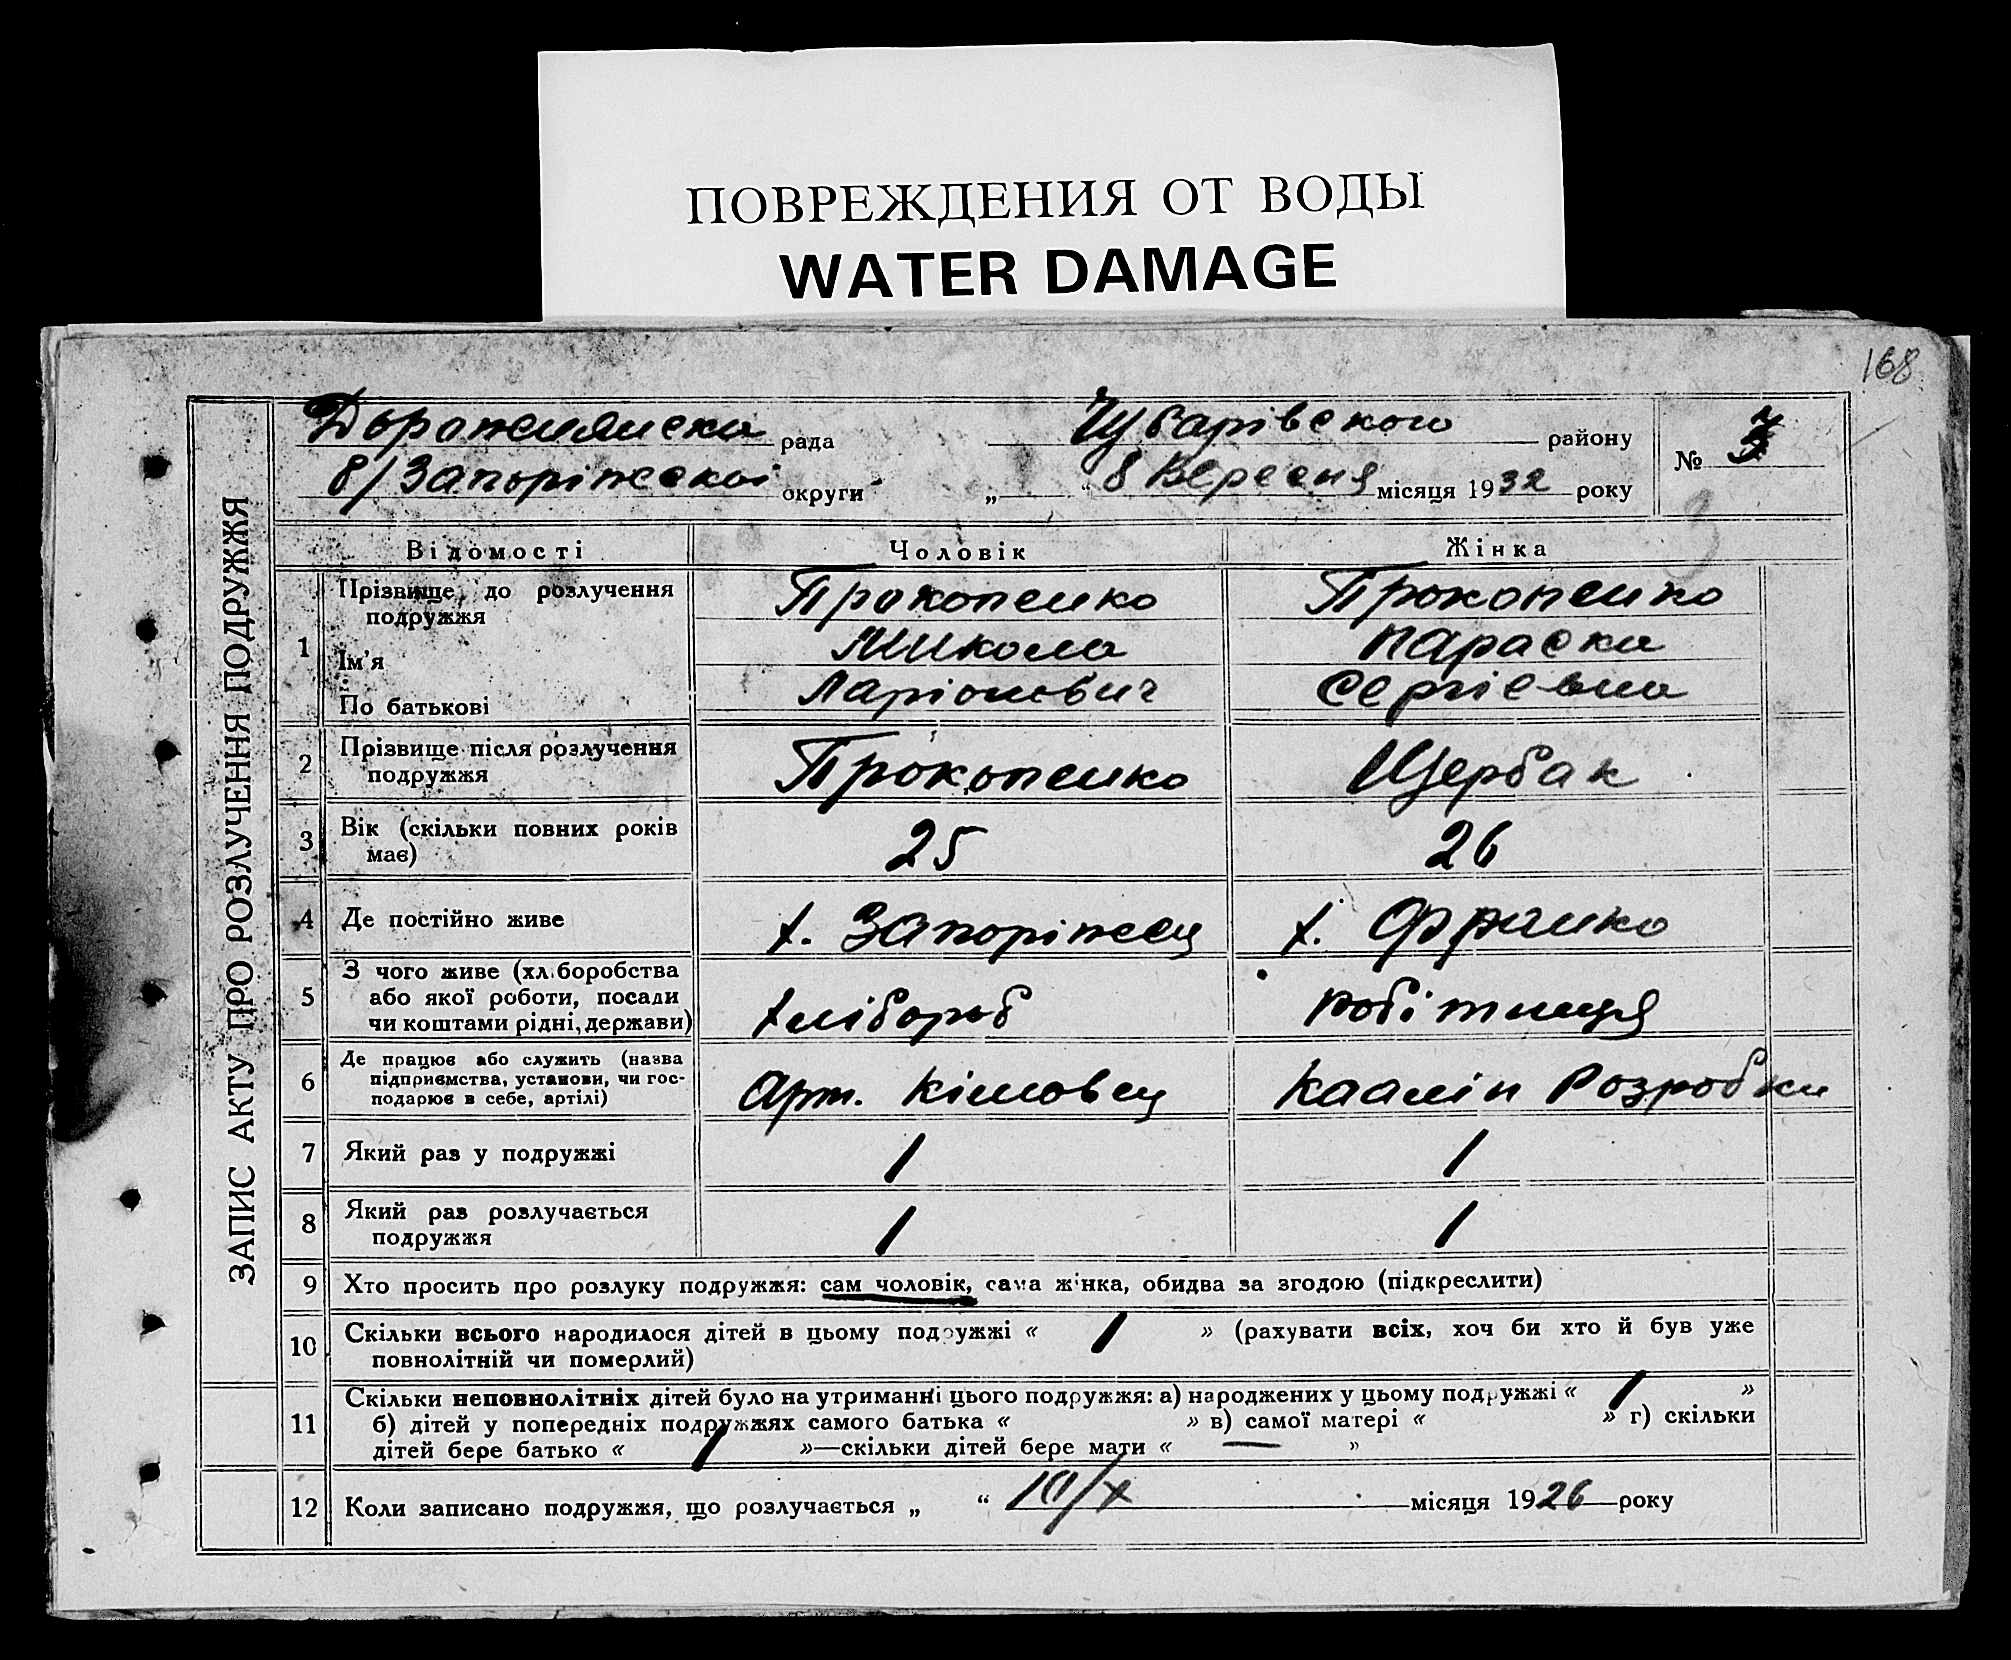 ПОВРЕЖДЕНИЯ ОТ ВОДЫ
WATER DAMAGE
168
Дорожнянска рада Чубарівского району
№ 3
8/Запоріжскої округи „ “ 8 Вересня місяця 1932 року
3
ЗАПИС АКТУ ПРО РОЗЛУЧЕННЯ ПОДРУЖЖЯ
Відомості Чоловік Жінка
1 Прізвище до розлучення подружжя Прокопенко Прокопенко
Ім'я Микола Параска
По батькові Ларіонович Сергієвна
2 Прізвище після розлучення подружжя Прокопенко Щербак
3 Вік (скільки повних років має) 25 26
4 Де постійно живе х. Запоріжец х. Франко
5 З чого живе (хліборобства або якої роботи, посади чи коштами рідні, держави) хлібороб робітниця
6 Де працює або служить (назва підприємства, установи, чи господарює в себе, артілі) Арт. Каолін Розробки
7 Який раз у подружжі 1 1
8 Який раз розлучається подружжя 1 1
9 Хто просить про розлуку подружжя: сам чоловік, сама жінка, обидва за згодою (підкреслити)
10 Скільки всього народилося дітей в цьому подружжі « 1 » (рахувати всіх, хоч би хто й був уже
повнолітній чи померлий)
11 Скільки неповнолітніх дітей було на утриманні цього подружжя: а) народжених у цьому подружжі « 1 »
б) дітей у попередніх подружжях самого батька « » в) самої матері « » г) скільки
дітей бере батько « 1 »—скільки дітей бере мати « — »
12 Коли записано подружжя, що розлучається „ “ 10/X місяця 1926 року